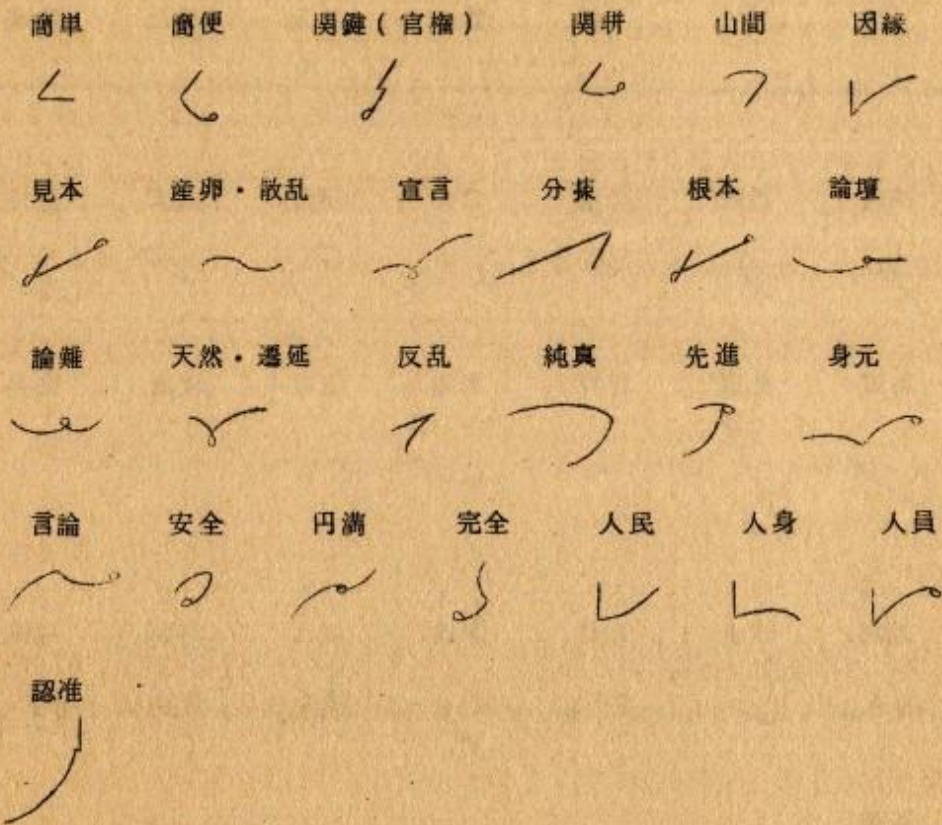 簡単 簡便 関鍵(官権) 関研 山間 因縁
見本 産卵・散乱 宣言 分 根本 論壇
論難 天然・遷延 反乱 純真 先進 身元
言論 安全 円満 完全 人民 人身 人員
認准